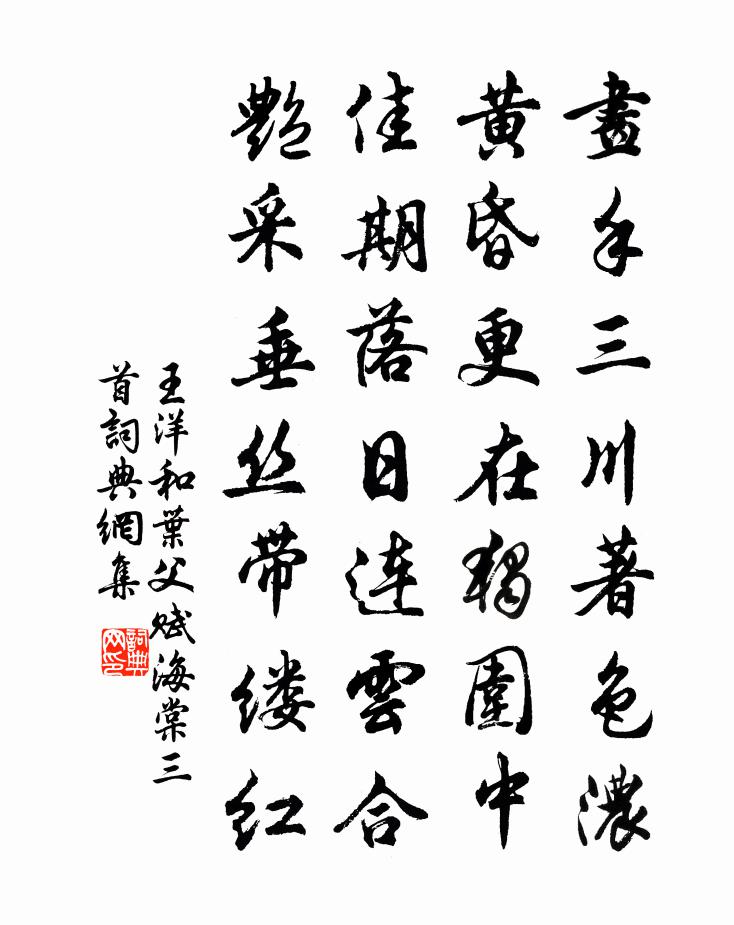 畫手三川著色濃
黄昏更在獨圍中
佳期落日連雲合
艷采垂丝帶缕红
王洋和葉父賦海棠三
首詞典網集
詞典网印